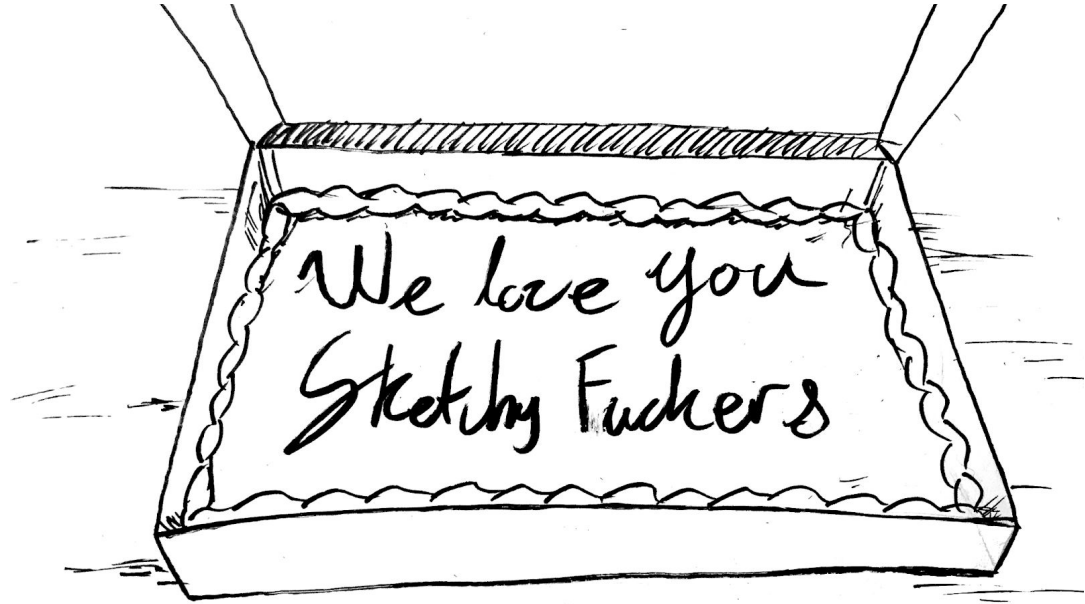 We love you
Sketchy Fuckers